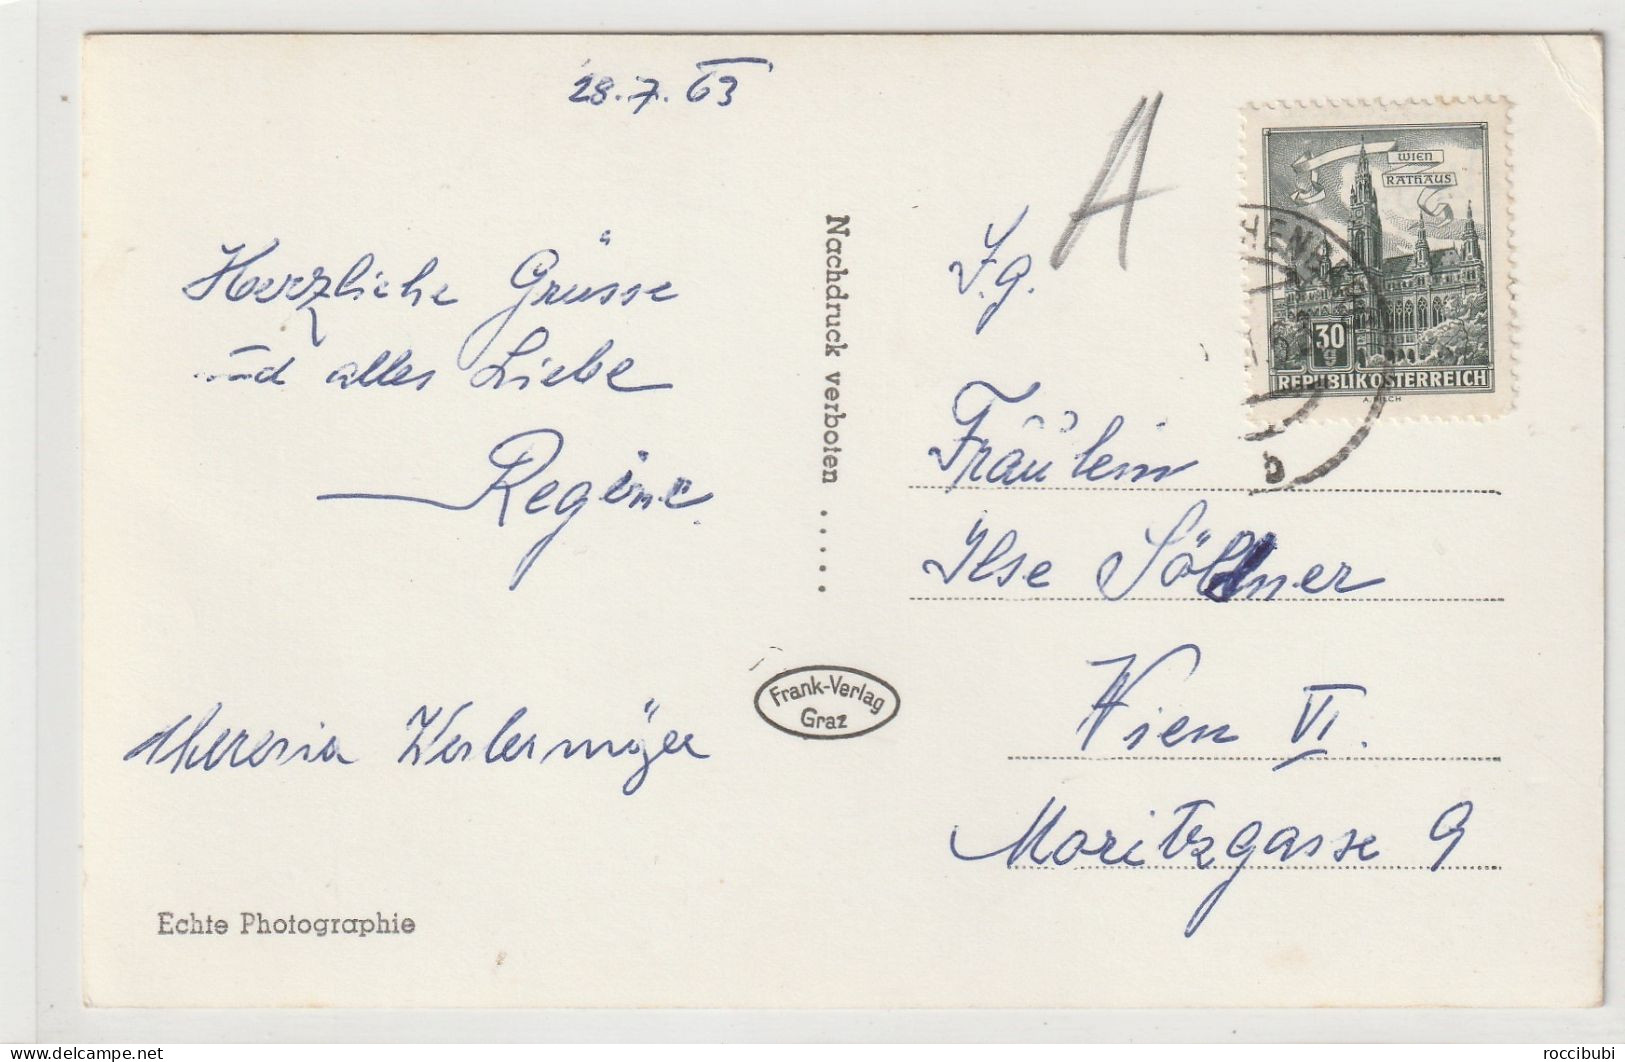 28.7.63
Herzliche Grüsse
und alles Liebe
Regine
Theresia
Echte Photographie
Nachdruck verboten .....
Frank-Verlag
Graz
A
WIEN
RATHAUS
30
g
REPUBLIK ÖSTERREICH
b
Fräulein
Ilse Söllner
Wien VI.
Moritzgasse 9
roccibubi